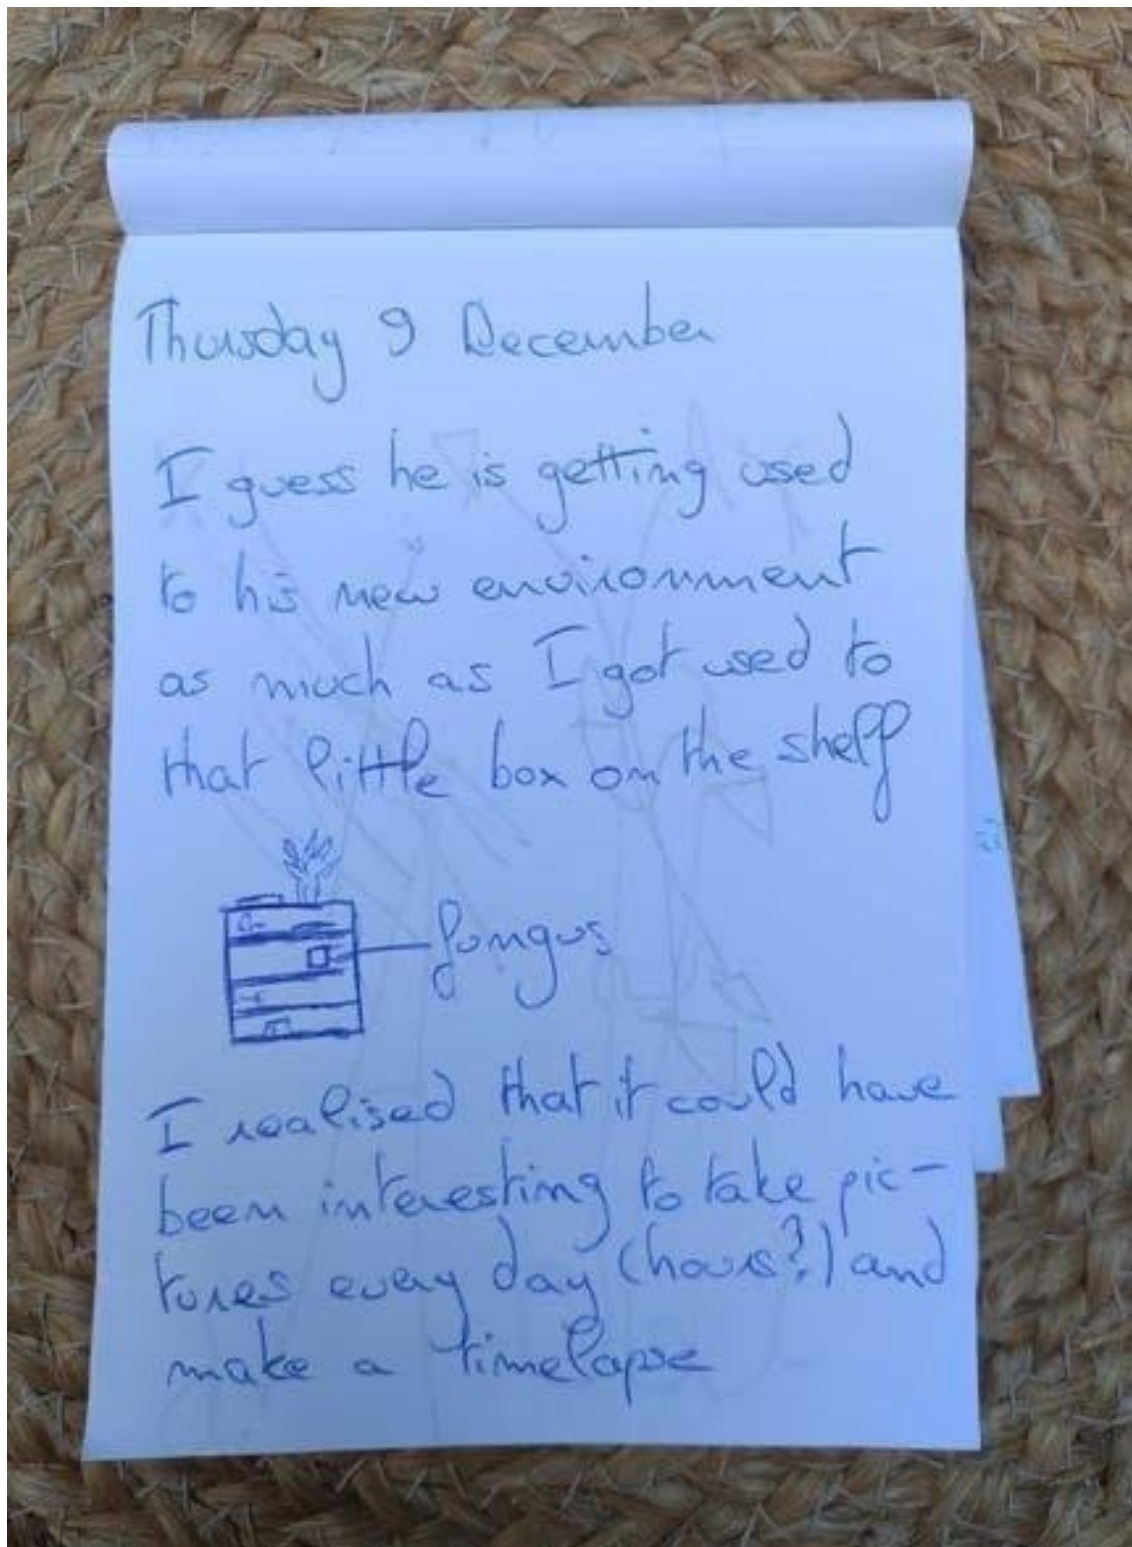 Thursday 9 December
I guess he is getting used
to his new environment
as much as I got used to
that little box on the shelf
fungus
I realised that it could have
been interesting to take pic-
tures every day (hours?) and
make a timelapse